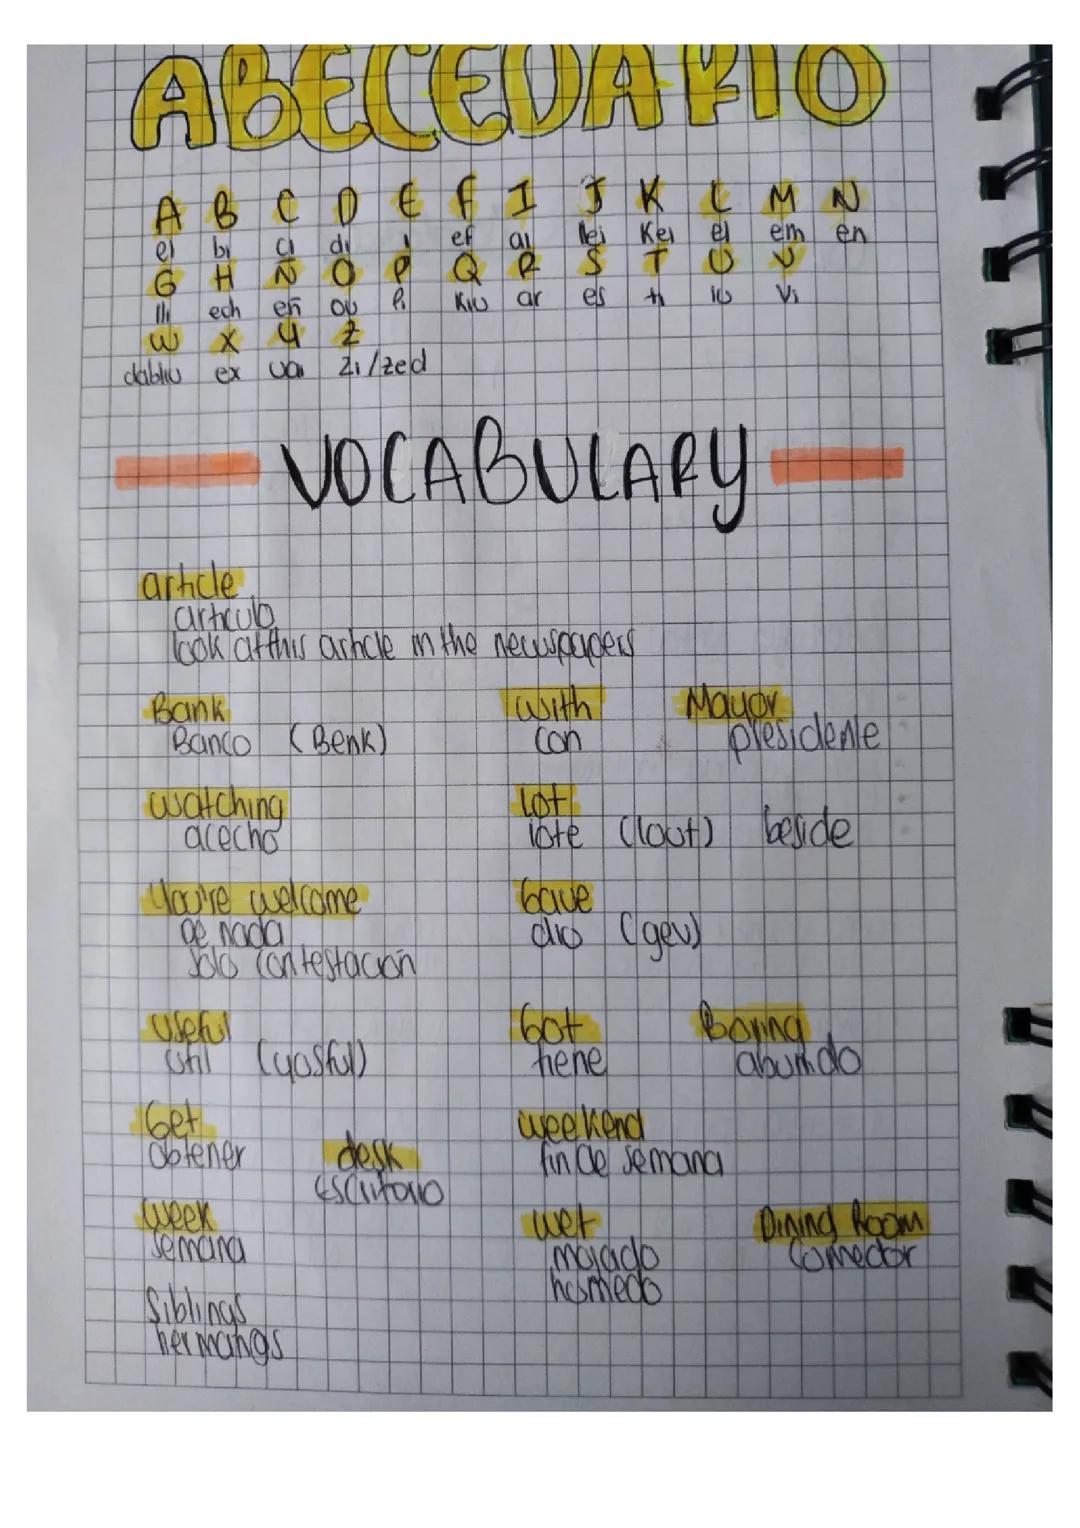 ABECEDARIO
A B C D E F I J K L M N
ei bi ci di i ef ai llei Kei el em en
G H Ñ O P Q R S T U V
lli ech eñ ou Pi Kiu ar es ti iu Vi
W X Y Z
dabliu ex uai zi/zed
VOCABULARY
article
articulo
look at this article in the newspapers
Bank
Banco (Benk)
with
con
Mayor
presidente
watching
acecho
Lot
lote (lout) beside
You're welcome
de nada
solo contestacion
Gave
dio (gev)
Useful
util (yusful)
Got
tiene
Boring
aburrido
Get
obtener
desk
escritorio
weekend
fin de semana
week
semana
wet
mojado
humedo
Dining Room
Comedor
Siblings
herman@s